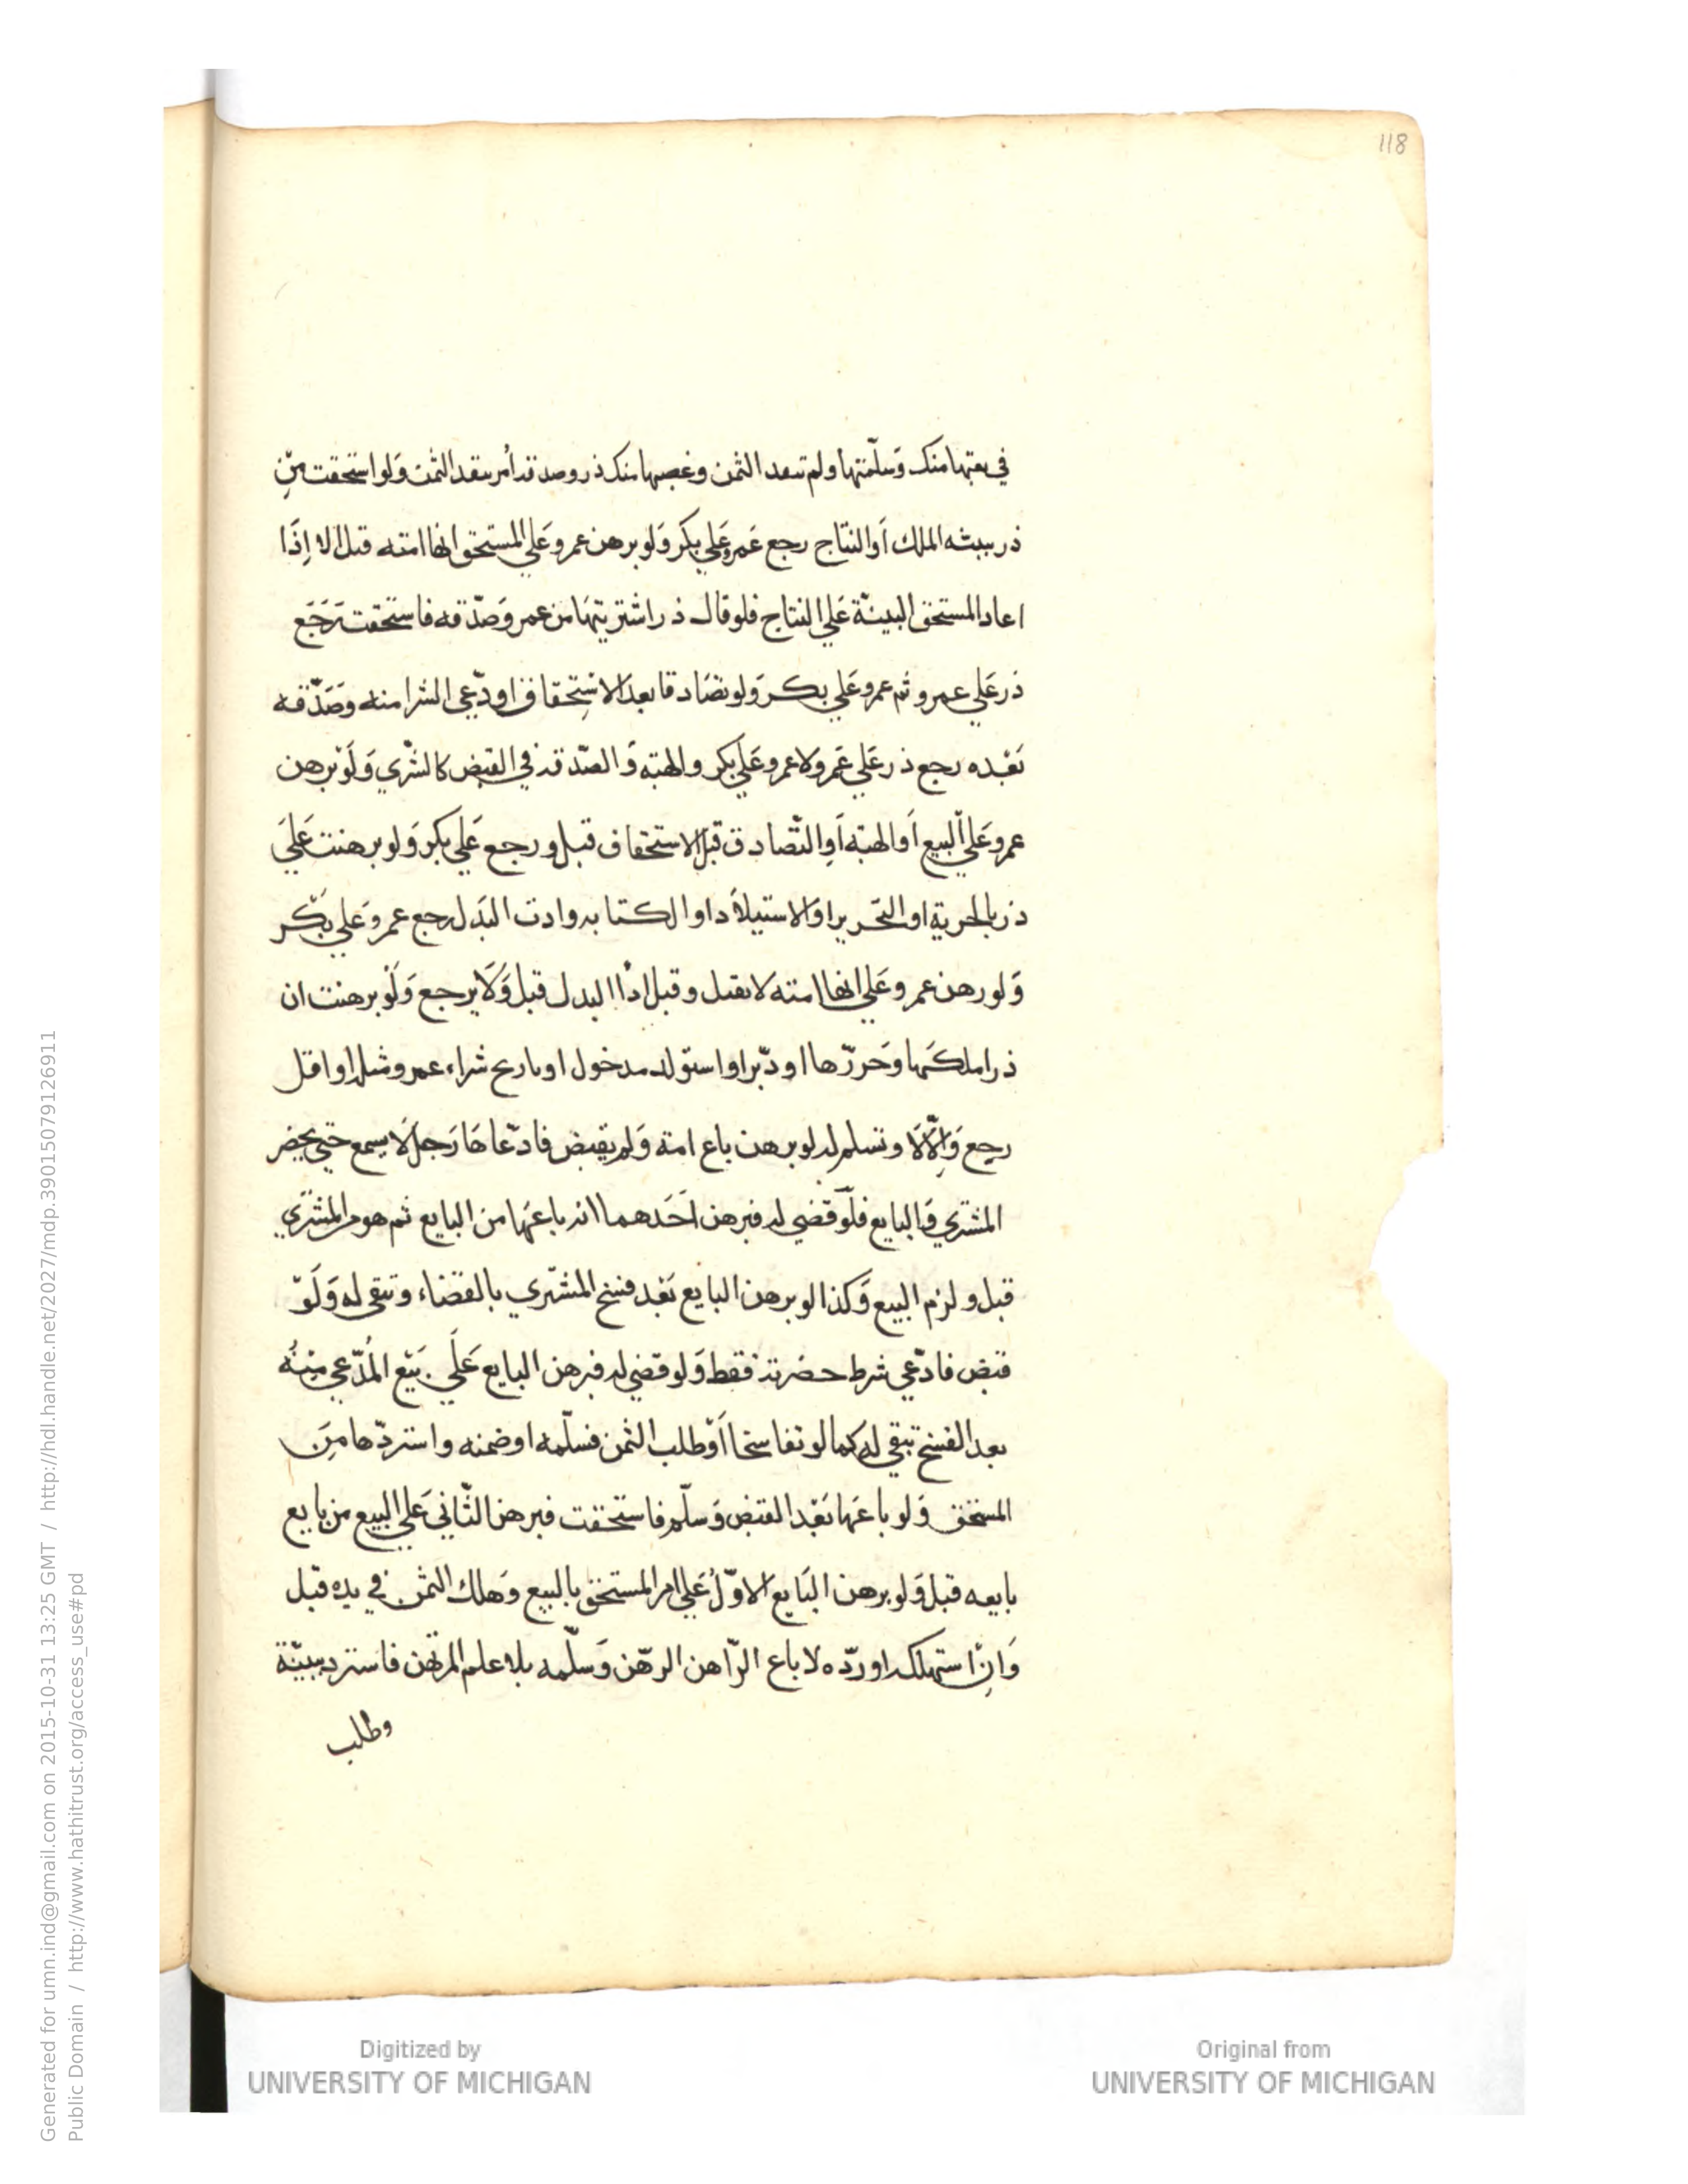 118
في بعتها منك وسلّمتها ولم تنقد الثمن وغصبها منك ذر وصدقه أمر بنقد الثمن ولو استحقت مِن
ذر ببينة الملك أو النتاج رجع عمرو علي بكر ولو برهن عمرو علي المستحق انها امته قبل الا إذا
اعاد المستحق البينة علي النتاج فلو قال ذر اشتريتها من عمر وصدّقه فاستحقت رجع
ذر علي عمرو ثم عمرو علي بكر ولو تصادقا بعد الاستحقاق او ادّعي الشرا منه وصدّقه
بعده رجع ذر علي عمرو لا عمرو علي بكر والهبة والصدقة في القبض كالشري ولو برهن
عمرو علي البيع أو الهبة أو التصادق قبل الاستحقاق قبل ورجع علي بكر ولو برهنت علي
ذر بالحرية او التحرير او الاستيلاد او الكتابه وادت البدل رجع عمرو علي بكر
ولو رهن عمرو علي انها امته لا يقبل وقبل ادا البدل قبل ولا يرجع ولو برهنت ان
ذرا ملكها وحررها او دبّر او استولد مدخول او تاريخ شراء عمرو مثله او اقل
رجع والّا لا وتسلم له لو برهن باع امة ولم يقبض فادّعاها رجل لا يسمع حتي يحضر
المشتري والبايع فلو قضي له فبرهن احدهما انه باعها من البايع ثم هو من المشتري
قبل ولزم البيع وكذا لو برهن البايع بعد فسخ المشتري بالقضاء وتبقي له ولو
قبض فادّعي شرط حضرته فقط ولو قضي له فبرهن البايع علي بيع المدّعي منه
بعد الفسخ تبقي له كما لو تفاسخا أو طلب الثمن فسلّمه او ضمنه واستردّها من
المستحق ولو باعها بعد القبض وسلّم فاستحقت فبرهن الثاني علي البيع من بايع
بايعه قبل ولو برهن البايع الاوّل علي امر المستحق بالبيع وهلك الثمن في يده قبل
وان استهلك او ردّه لا باع الرّاهن الرهن وسلّمه بلا علم المرتهن فاسترد ببيّنة
وطلب
Generated for umn.ind@gmail.com on 2015-10-31 13:25 GMT / http://hdl.handle.net/2027/mdp.39015079126911
Public Domain / http://www.hathitrust.org/access_use#pd
Digitized by
UNIVERSITY OF MICHIGAN
Original from
UNIVERSITY OF MICHIGAN